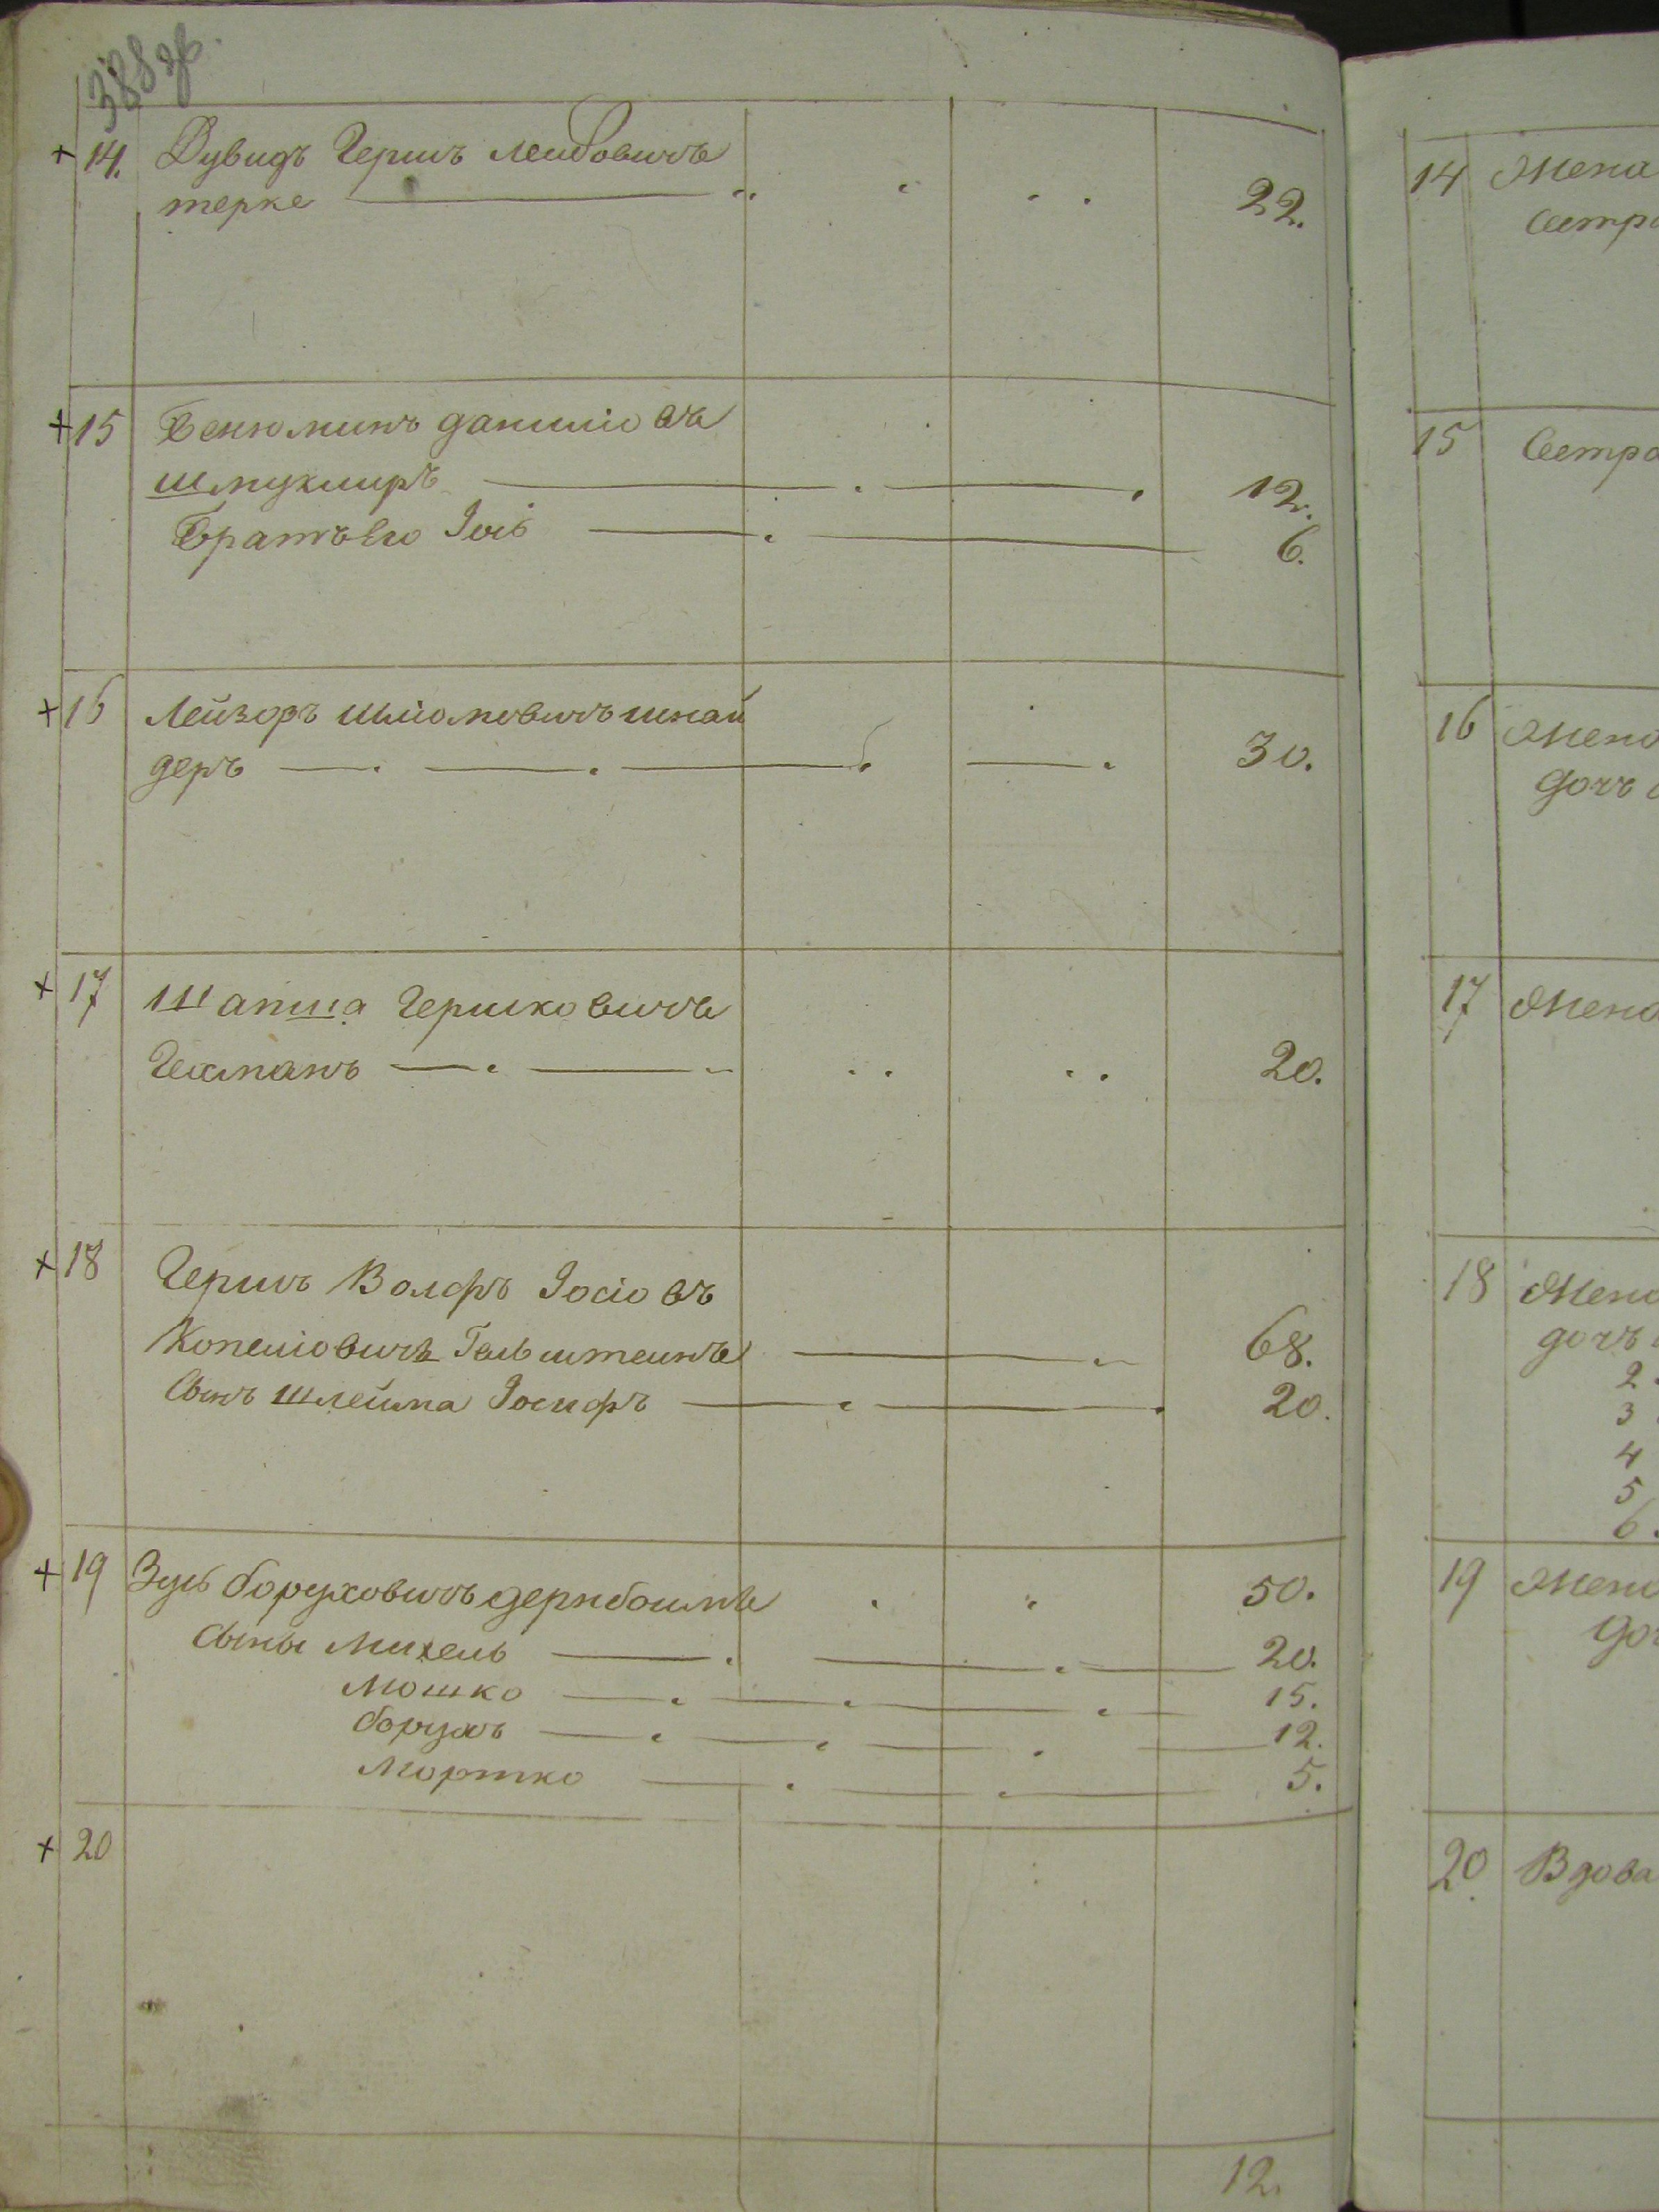 388 об.
+ 14. Дувидъ Гершъ Лейбовичъ
терке 22.
+ 15 Бенюминъ Даниліовъ
шмуклиръ 12.
Братъ Его Іось 6.
+ 16 Лейзоръ Шліомовичъ шнай
деръ 30.
+ 17 Шапша Гершковичъ
Гехманъ 20.
+ 18 Гершъ Волфъ Іосіовъ
Копеліовичъ Гольштеинъ 68.
Сынъ Шлейма Іосифъ 20.
+ 19 Зусь Боруховичъ дернбоимъ 50.
Сыны Михель 20.
Мошко 15.
борухъ 12.
Мортко 5.
+ 20
12.
14 Жена
Сестра
15 Сестра
16 Жена
дочь
17 Жена
18 Жена
дочь
2.
3
4
5
6.
19 Жена
20. Вдова